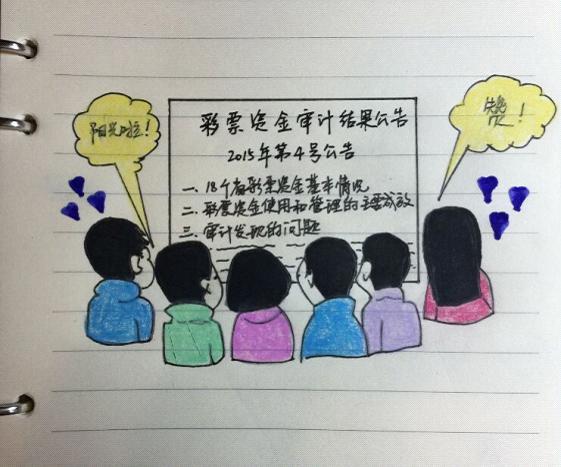 阳光啦！
赞！
彩票资金审计结果公告
2015年第4号公告
一、18个省彩票资金基本情况
二、彩票资金使用和管理的主要成效
三、审计发现的问题